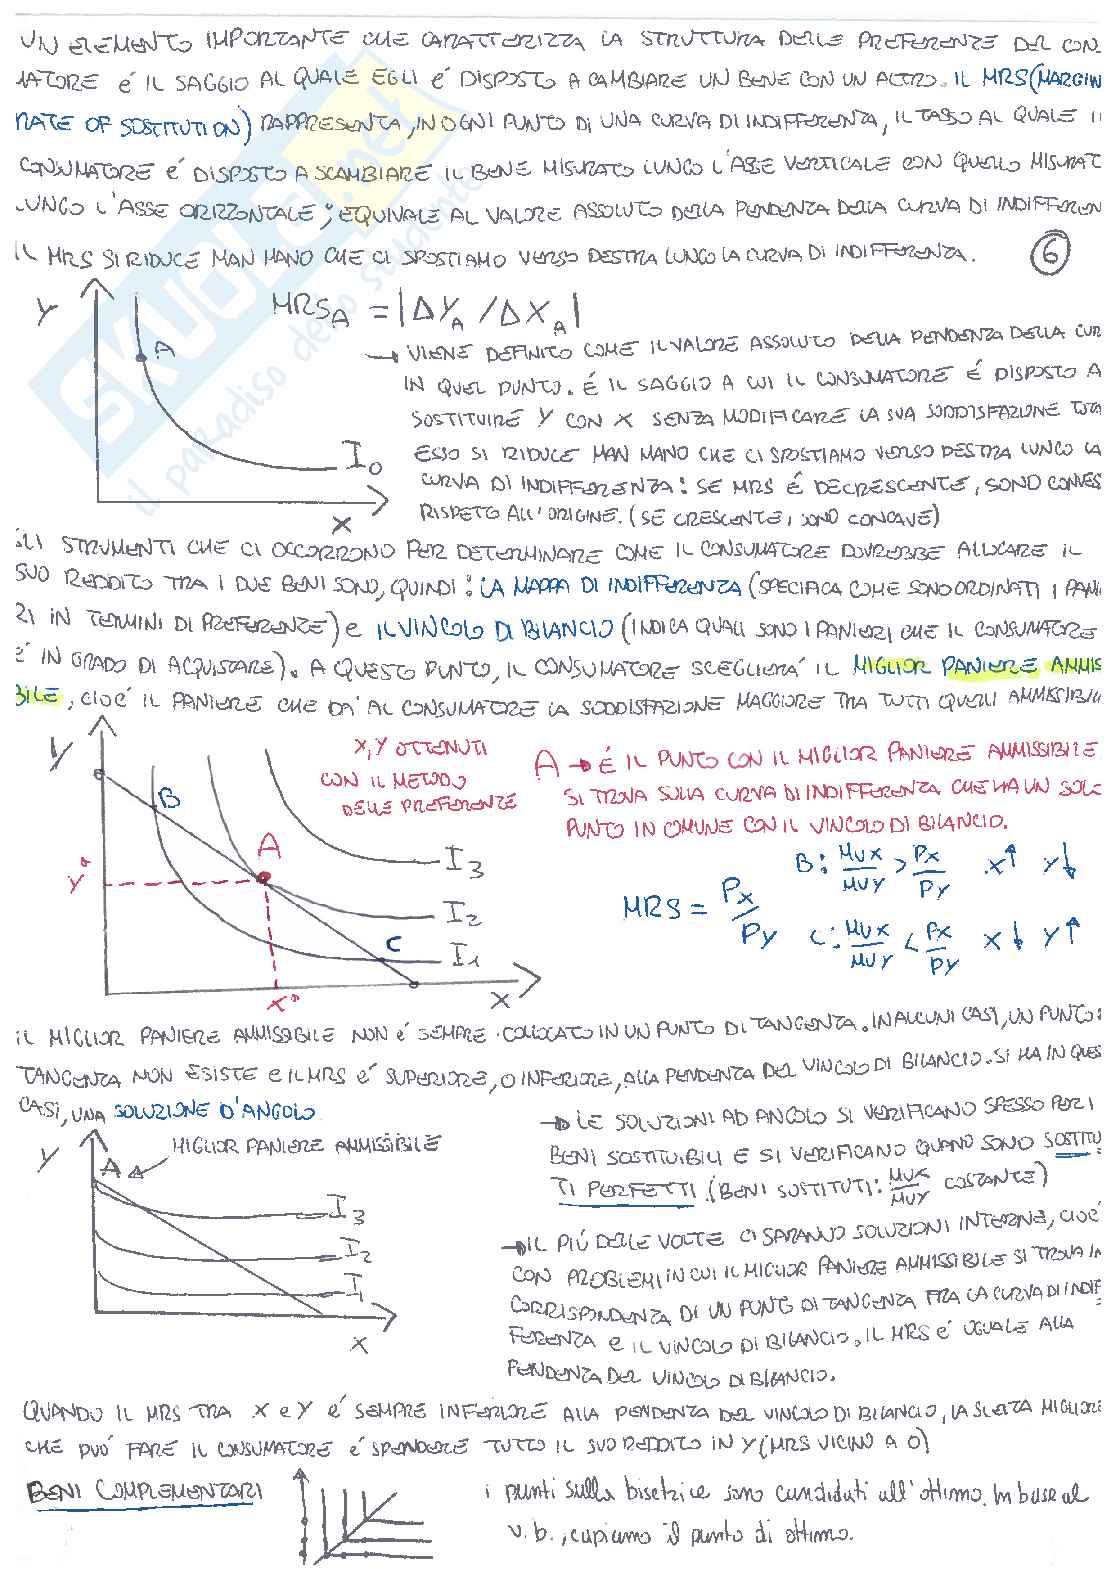 UN ELEMENTO IMPORTANTE CHE CARATTERIZZA LA STRUTTURA DELLE PREFERENZE DEL CON
MATORE É IL SAGGIO AL QUALE EGLI É DISPOSTO A CAMBIARE UN BENE CON UN ALTRO. IL MRS (MARGIN
RATE OF SOSTITUTION) RAPPRESENTA, IN OGNI PUNTO DI UNA CURVA DI INDIFFERENZA, IL TASSO AL QUALE I
CONSUMATORE É DISPOSTO A SCAMBIARE IL BENE MISURATO LUNGO L'ASSE VERTICALE CON QUELLO MISURAT
LUNGO L'ASSE ORIZZONTALE; EQUIVALE AL VALORE ASSOLUTO DELLA PENDENZA DELLA CURVA DI INDIFFEREN
IL MRS SI RIDUCE MAN MANO CHE CI SPOSTIAMO VERSO DESTRA LUNGO LA CURVA DI INDIFFERENZA. 6
SKUOLA.net
il paradiso dello studente
Y
A
I0
X
MRS_A = |ΔY_A / ΔX_A|
→ VIENE DEFINITO COME IL VALORE ASSOLUTO DELLA PENDENZA DELLA CUR
IN QUEL PUNTO. É IL SAGGIO A CUI IL CONSUMATORE É DISPOSTO A
SOSTITUIRE Y CON X SENZA MODIFICARE LA SUA SODDISFAZIONE TOTA
ESSO SI RIDUCE MAN MANO CHE CI SPOSTIAMO VERSO DESTRA LUNGO LA
CURVA DI INDIFFERENZA: SE MRS É DECRESCENTE, SONO CONVES
RISPETO ALL'ORIGINE. (SE CRESCENTE, SONO CONCAVE)
GLI STRUMENTI CHE CI OCCORRONO PER DETERMINARE COME IL CONSUMATORE DOVREBBE ALLOCARE IL
SUO REDDITO TRA I DUE BENI SONO, QUINDI: LA MAPPA DI INDIFFERENZA (SPECIFICA COME SONO ORDINATI I PANI
RI IN TERMINI DI PREFERENZE) E IL VINCOLO DI BILANCIO (INDICA QUALI SONO I PANIERI CHE IL CONSUMATORE
É IN GRADO DI ACQUISTARE). A QUESTO PUNTO, IL CONSUMATORE SCEGLIERA' IL MIGLIOR PANIERE AMMIS
BILE, CIOE' IL PANIERE CHE DA' AL CONSUMATORE LA SODDISFAZIONE MAGGIORE TRA TUTTI QUELLI AMMISSIBILI
Y
X, Y OTTENUTI
CON IL METODO
DELLE PREFERENZE
B
A
Y*
C
I3
I2
I1
X*
X
A → É IL PUNTO CON IL MIGLIOR PANIERE AMMISSIBILE
SI TROVA SULLA CURVA DI INDIFFERENZA CHE HA UN SOLO
PUNTO IN COMUNE CON IL VINCOLO DI BILANCIO.
MRS = Px/Py
B: MUX/MUY > Px/Py X↑ Y↓
C: MUX/MUY < Px/Py X↓ Y↑
IL MIGLIOR PANIERE AMMISSIBILE NON É SEMPRE COLLOCATO IN UN PUNTO DI TANGENZA. IN ALCUNI CASI, UN PUNTO
TANGENZA NON ESISTE E IL MRS É SUPERIORE, O INFERIORE, ALLA PENDENZA DEL VINCOLO DI BILANCIO. SI HA IN QUES
CASI, UNA SOLUZIONE D'ANGOLO
Y
A
MIGLIOR PANIERE AMMISSIBILE
I3
I2
I1
X
→ LE SOLUZIONI AD ANGOLO SI VERIFICANO SPESSO PER I
BENI SOSTITUIBILI E SI VERIFICANO QUANDO SONO SOSTITU
TI PERFETTI. (BENI SOSTITUTI: MUX/MUY COSTANTE)
→ IL PIÚ DELLE VOLTE CI SARANNO SOLUZIONI INTERNE, CIOE'
CON PROBLEMI IN CUI IL MIGLIOR PANIERE AMMISSIBILE SI TROVA IN
CORRISPONDENZA DI UN PUNTO DI TANGENZA FRA LA CURVA DI INDIF
FERENZA E IL VINCOLO DI BILANCIO. IL MRS E' UGUALE ALLA
PENDENZA DEL VINCOLO DI BILANCIO.
QUANDO IL MRS TRA X E Y É SEMPRE INFERIORE ALLA PENDENZA DEL VINCOLO DI BILANCIO, LA SCELTA MIGLIORE
CHE PUO' FARE IL CONSUMATORE É SPENDERE TUTTO IL SUO REDDITO IN Y (MRS VICINO A 0)
BENI COMPLEMENTARI
i punti sulla bisetrice sono candidati all'ottimo. In base al
v.b., capiamo il punto di ottimo.